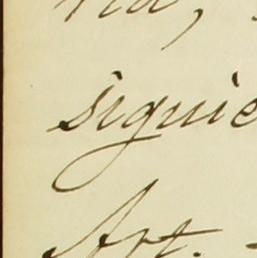 siguie
Art.